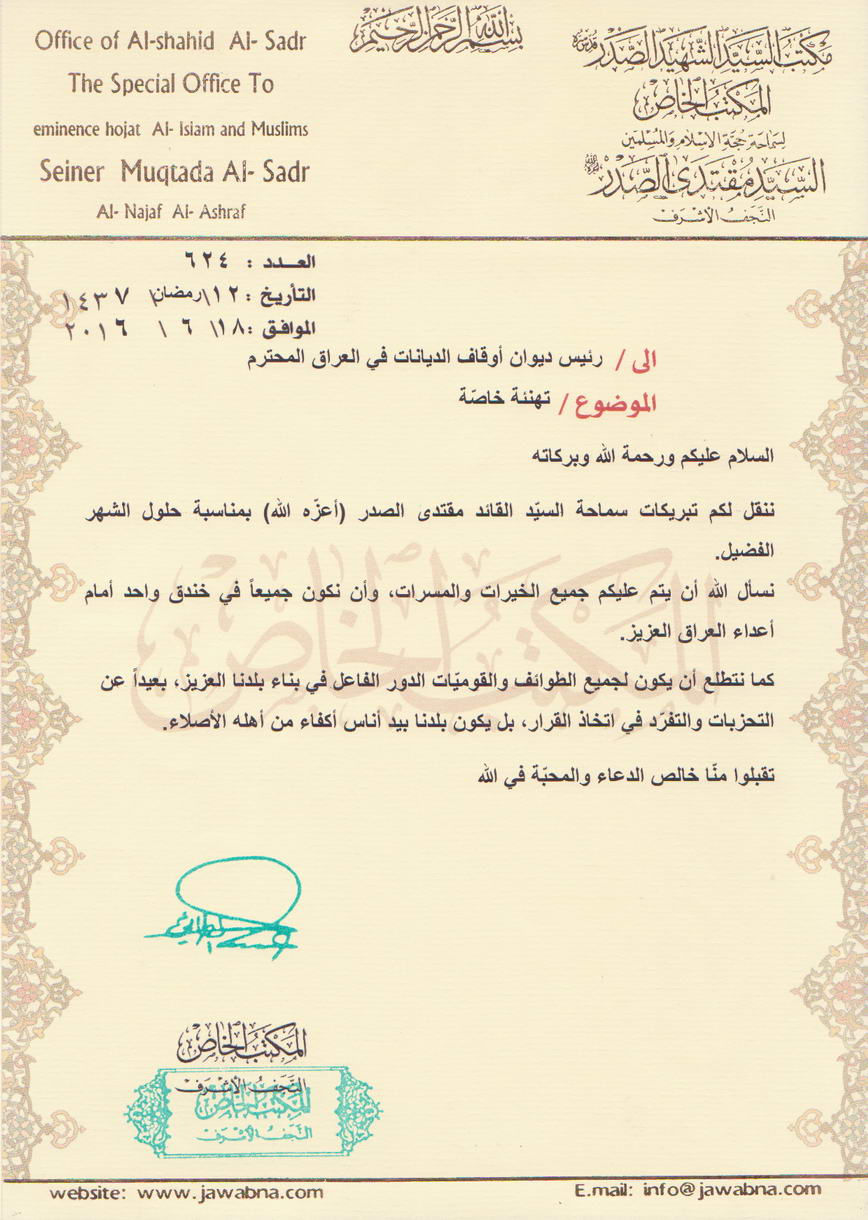 بسم الله الرحمن الرحيم
Office of Al-shahid Al- Sadr
The Special Office To
eminence hojat Al- Islam and Muslims
Seiner Muqtada Al- Sadr
Al- Najaf Al- Ashraf
مكتب السيد الشهيد الصدر
المكتب الخاص
لسماحة حجة الاسلام والمسلمين
السيد مقتدى الصدر
النجف الأشرف
العـدد : ٦٢٤
التأريخ : ١٢\رمضان\ ١٤٣٧
الموافق : ١٨\ ٦ \ ٢٠١٦
الى / رئيس ديوان أوقاف الديانات في العراق المحترم
الموضوع / تهنئة خاصّة
السلام عليكم ورحمة الله وبركاته
ننقل لكم تبريكات سماحة السيّد القائد مقتدى الصدر (أعزّه الله) بمناسبة حلول الشهر
الفضيل.
نسأل الله أن يتم عليكم جميع الخيرات والمسرات، وأن نكون جميعاً في خندق واحد أمام
أعداء العراق العزيز.
كما نتطلع أن يكون لجميع الطوائف والقوميّات الدور الفاعل في بناء بلدنا العزيز، بعيداً عن
التحزبات والتفرّد في اتخاذ القرار، بل يكون بلدنا بيد أناس أكفاء من أهله الأصلاء.
تقبلوا منّا خالص الدعاء والمحبّة في الله
المكتب الخاص
النجف الأشرف
المكتب الخاص
النجف الأشرف
المكتب الخاص
website: www.jawabna.com
E.mail: info@jawabna.com